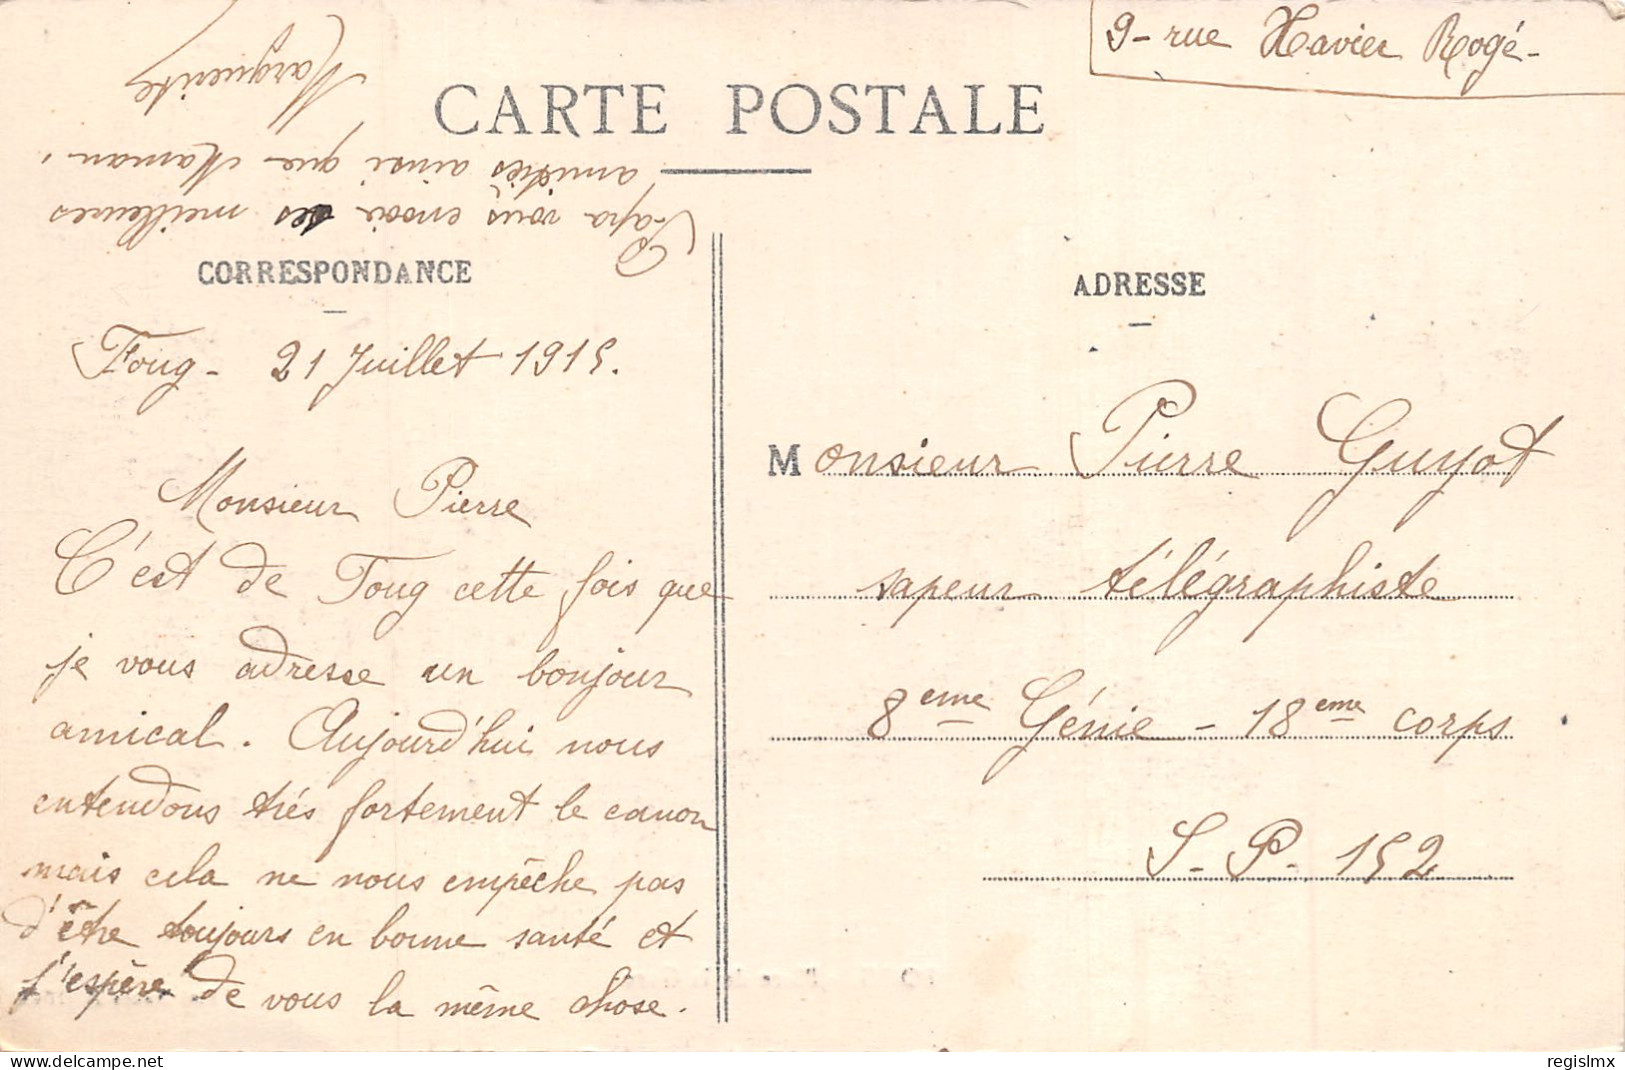 9 - rue Xavier Rogé -
CARTE POSTALE
CORRESPONDANCE
Foug - 21 Juillet 1915.
Monsieur Pierre
C'est de Foug cette fois que
je vous adresse un bonjour
amical. Aujourd'hui nous
entendons très fortement le canon
mais cela ne nous empêche pas
d'être toujours en bonne santé et
j'espère de vous la même chose.
Papa vous envoie ses meilleures
amitiés ainsi que Maman.
Marguerite
ADRESSE
Monsieur Pierre Guyot
sapeur télégraphiste
8eme Génie - 18eme corps
S. P. 152
regislmx